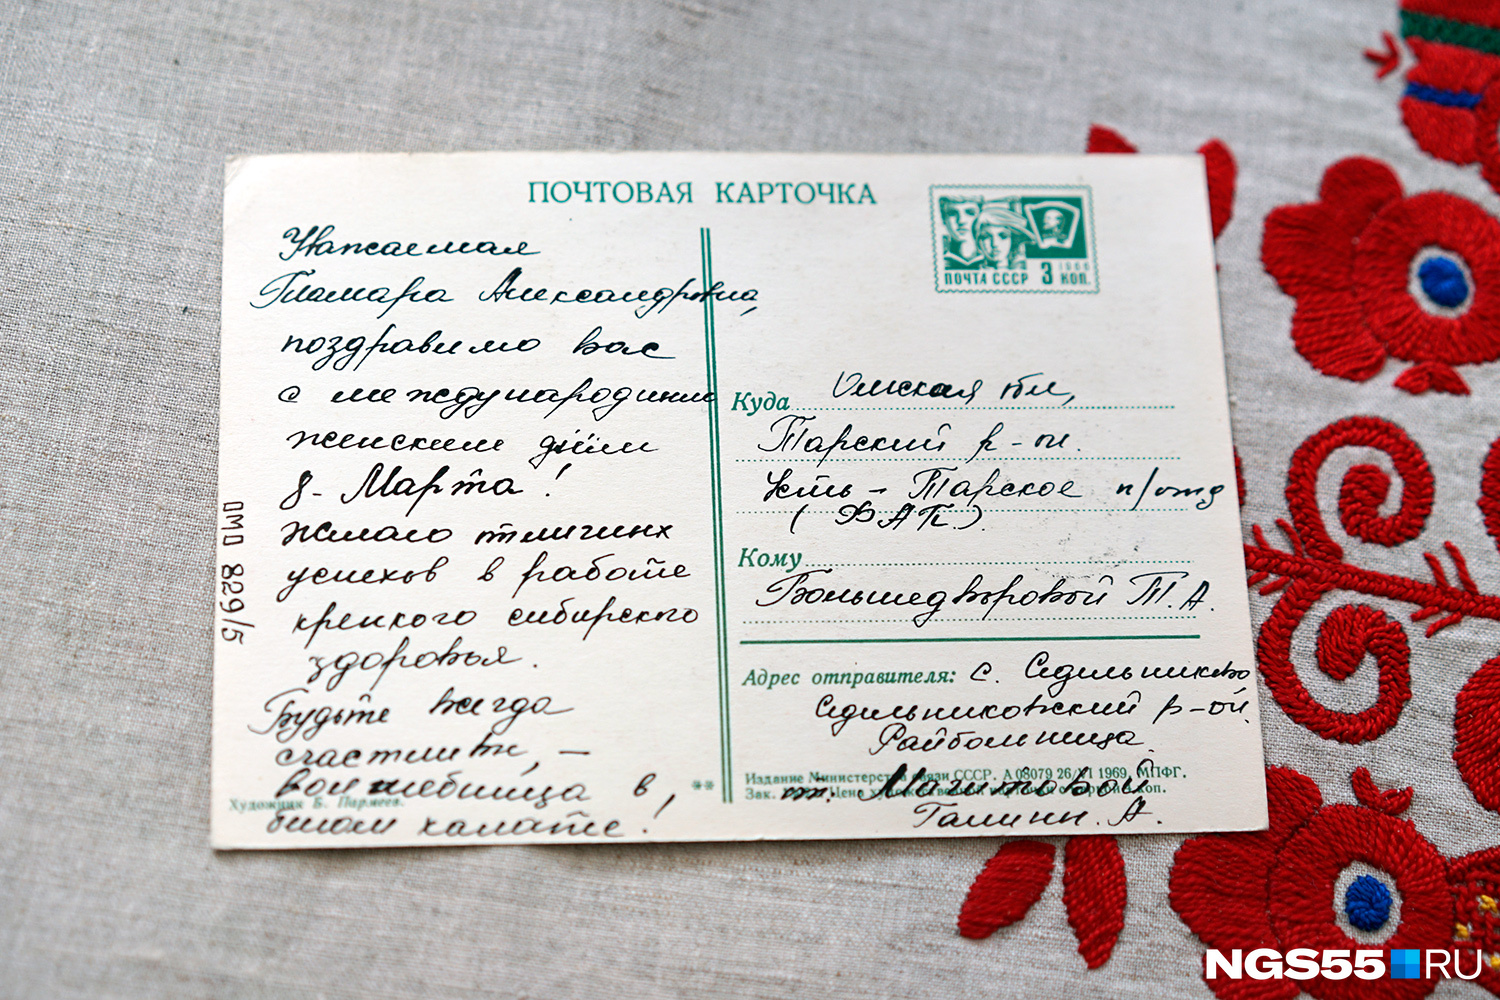 ПОЧТОВАЯ КАРТОЧКА
ПОЧТА СССР 3 КОП.
1966
Уважаемая
Тамара Александровна,
поздравимо вас
с международним
женским днём
8 - Марта!
желаю отличних
успехов в работе
крепкого сибирского
здоровья.
Будьте всегда
счастливи, —
волшебница в,
белом халате!
Художник Б. Пармеев.
ОМО 829/5
Куда Омская обл,
Тарский р-он.
Усть - Тарское п/отд
(ФАП).
Кому
Большедворовой Т. А.
Адрес отправителя: с. Седельниково
Седельниковский р-он.
Райбольница.
Издание Министерства связи СССР. А 08079 26/VI 1969. МПФГ.
Зак. Цена коп.
Галине. А.
**
NGS55 RU